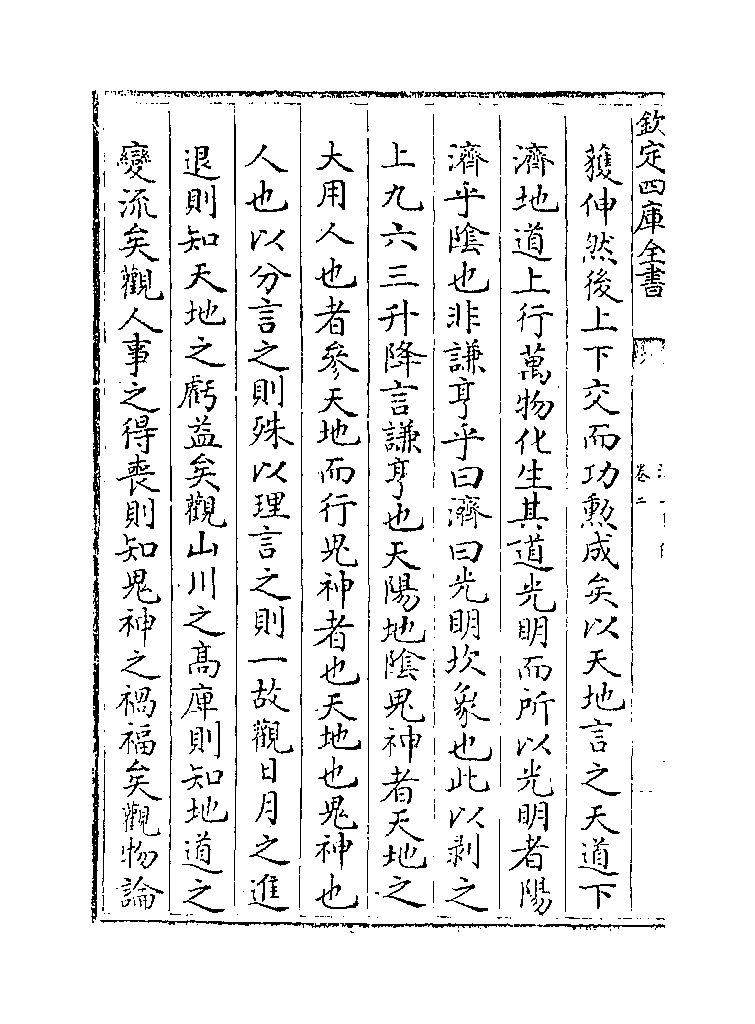 欽定四庫全書
卷二
獲伸然後上下交而功勲成矣以天地言之天道下
濟地道上行萬物化生其道光明而所以光明者陽
濟乎陰也非謙亨乎曰濟曰光明坎象也此以剥之
上九六三升降言謙亨也天陽地陰鬼神者天地之
大用人也者參天地而行鬼神者也天地也鬼神也
人也以分言之則殊以理言之則一故觀日月之進
退則知天地之虧益矣觀山川之髙庫則知地道之
變流矣觀人事之得喪則知鬼神之禍福矣觀物論